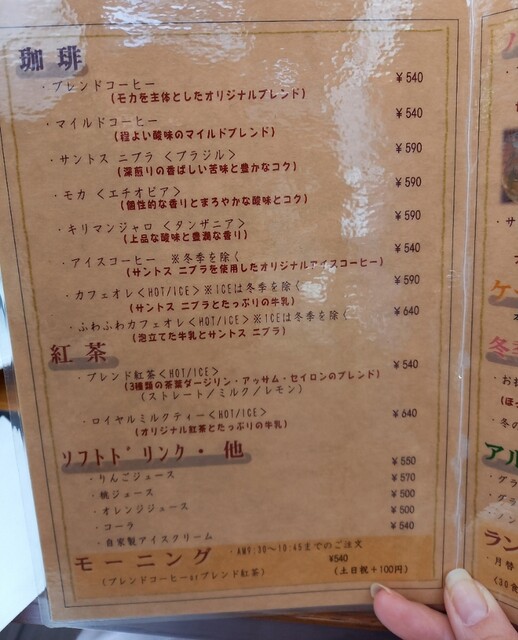 珈 琲
・ブレンドコーヒー ¥540
(モカを主体としたオリジナルブレンド)
・マイルドコーヒー ¥540
(程よい酸味のマイルドブレンド)
・サントス ニブラ <ブラジル> ¥590
(深煎りの香ばしい苦味と豊かなコク)
・モカ <エチオピア> ¥590
(個性的な香りとまろやかな酸味とコク)
・キリマンジャロ <タンザニア> ¥590
(上品な酸味と豊潤な香り)
・アイスコーヒー ※冬季を除く ¥540
(サントス ニブラを使用したオリジナルアイスコーヒー)
・カフェオレ<HOT/ICE>※ICEは冬季を除く ¥590
(サントス ニブラとたっぷりの牛乳)
・ふわふわカフェオレ<HOT/ICE>※ICEは冬季を除く ¥640
(泡立てた牛乳とサントス ニブラ)
紅 茶
・ブレンド紅茶<HOT/ICE> ¥540
(3種類の茶葉ダージリン・アッサム・セイロンのブレンド)
(ストレート/ミルク/レモン)
・ロイヤルミルクティー<HOT/ICE> ¥640
(オリジナル紅茶とたっぷりの牛乳)
ソフトドリンク・ 他
・りんごジュース ¥550
・桃ジュース ¥570
・オレンジジュース ¥500
・コーラ ¥500
・自家製アイスクリーム ¥540
モーニング ・AM9:30～10:45までのご注文
¥540
(ブレンドコーヒーorブレンド紅茶) (土日祝+100円)
ケ
冬季
冬の
アル
グラ
グラ
ラン
月替